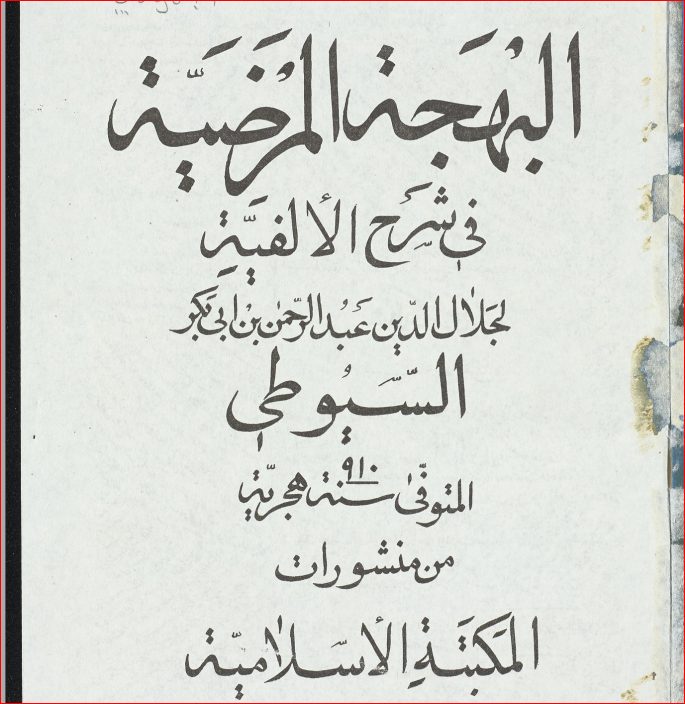 البَهْجَة المَرْضَيَّة
في شَرْح الألفيَّةِ
لجَلال الدّين عَبْد الرَّحمٰن بْن ابي بَكر
السّيُوطي
المتوفّىٰ سنة ٩١٠ هجريّة
من منشورات
المَكتَبَةِ الأسلاميّة